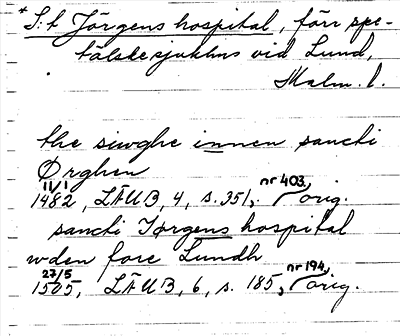 * S:t Jörgens hospital, förr spe-
tälskesjukhus vid Lund,
Malm. l.
the siwghe innen sancti
Ørghen
11/1 1482, LÄUB, 4, s. 351, nr 403, orig.
sancti Jørgens hospital
wden fore Lundh
27/5 1505, LÄUB, 6, s. 185, nr 194, orig.